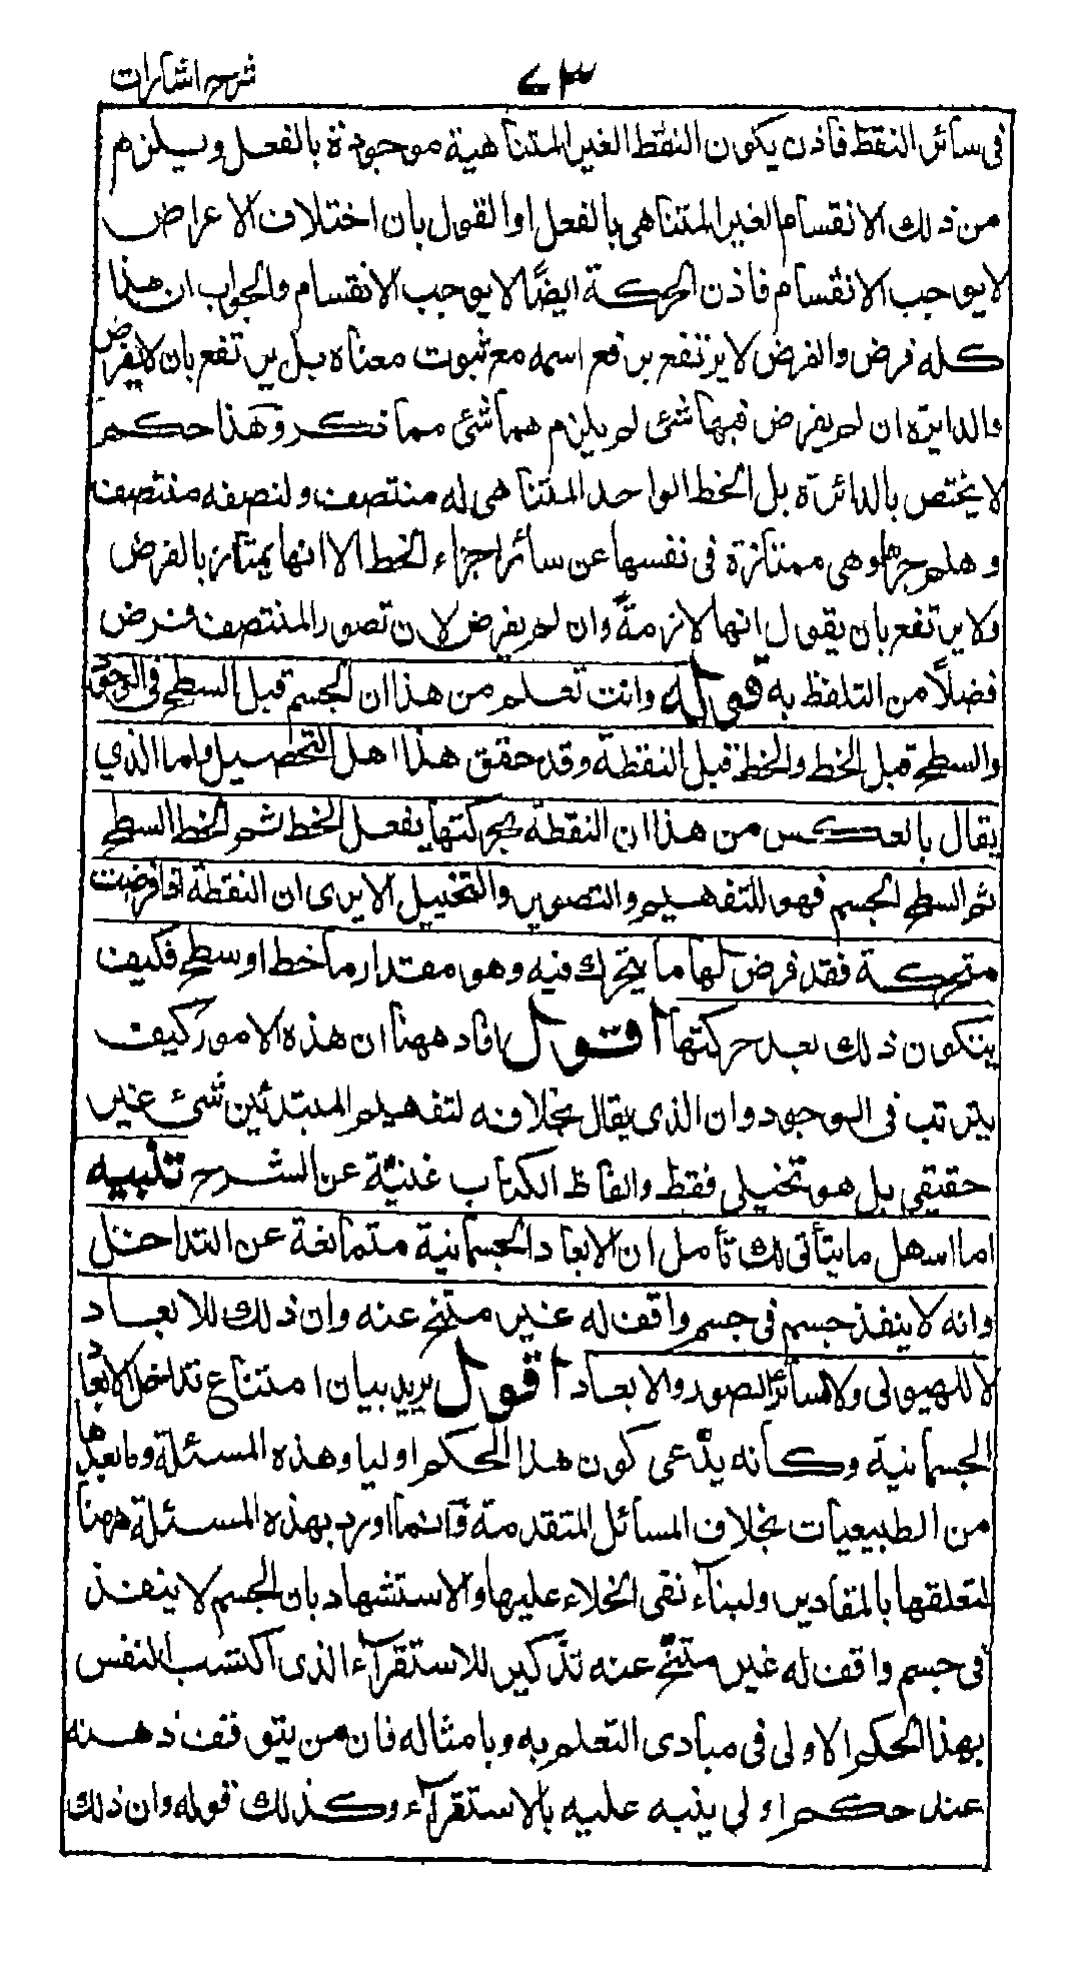 ٧٣
شرح اشارات
فى سائر النقط فاذن يكون النقط الغير المتناهية موجودة بالفعل ويلزم
من ذلك الانقسام الغير المتناهى بالفعل او القول بان اختلاف الاعراض
لا يوجب الانقسام فاذن الحركة ايضًا لا يوجب الانقسام والجواب ان هذا
كله فرض والفرض لا يرتفع برفع اسمه مع ثبوت معناه بل يرتفع بان لا يفرض
والدايرة ان لم يفرض فيها شئ لم يلزم هما شئ مما ذكر وهذا حكم
لا يختص بالدائرة بل الخط الواحد المتناهى له منتصف ولنصفه منتصف
وهلم جرا وهى ممتازة فى نفسها عن سائر اجزاء الخط الا انها يمتاز بالفرض
ولا يرتفع بان يقول انها لازمةً وان لم يفرض لان تصور المنتصف فرض
فضلاً من التلفظ به قوله وانت تعلم من هذا ان الجسم قبل السطح فى الوجود
والسطح قبل الخط والخط قبل النقطة وقد حقق هذا اهل التحصيل واما الذي
يقال بالعكس من هذا ان النقطة بحركتها يفعل الخط ثم الخط السطح
ثم السطح الجسم فهو للتفهيم والتصوير والتخييل الا يرى ان النقطة اذا فرضت
متحركة فقد فرض لها ما يتحرك فيه وهو مقدار ما خط او سطح فكيف
يتكون ذلك بعد حركتها اقول افاد ههنا ان هذه الامور كيف
يترتب فى الوجود وان الذى يقال بخلافه لتفهيم المبتدئين شئ غير
حقيقى بل هو تخيلى فقط والفاظ الكتاب غنيّة عن الشرح تنبيه
اما اسهل ما يتأتى لك تأمل ان الابعاد الجسمانية متمانعة عن التداخل
وانه لا ينفذ جسم فى جسم واقف له غير متنح عنه وان ذلك للابعاد
لا للهيولى ولا لسائر الصور والابعاد اقول يريد بيان امتناع تداخل الابعاد
الجسمانية وكأنه يدّعى كون هذا الحكم اوليا وهذه المسئلة وما بعدها
من الطبيعيات بخلاف المسائل المتقدمة وآنما اورد بهذه المسئلة ههنا
لتعلقها بالمقادير ولبناء نفى الخلاء عليها والاستشهاد بان الجسم لا ينفذ
فى جسم واقف له غير متنحّ عنه تذكير للاستقرآء الذى اكتسب النفس
بهذا الحكم الاولى فى مبادى التعلم به وبامثاله فان من يتوقف ذهنه
عند حكم اولى ينبه عليه بالاستقرآء وكذلك قوله وان ذلك